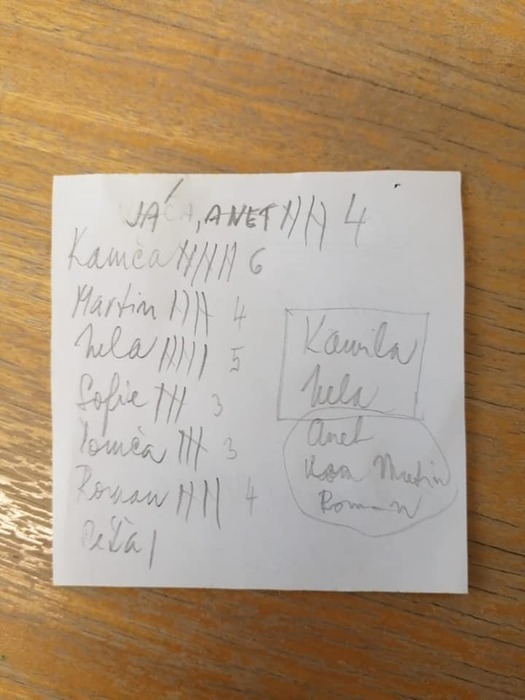 JÁ, ANET |||| 4
Kamča |||||| 6
Martin |||| 4
Nela ||||| 5
Sofie ||| 3
Tomča ||| 3
Roman |||| 4
Péťa |
Kamila
Nela
Anet
Martin
Roman